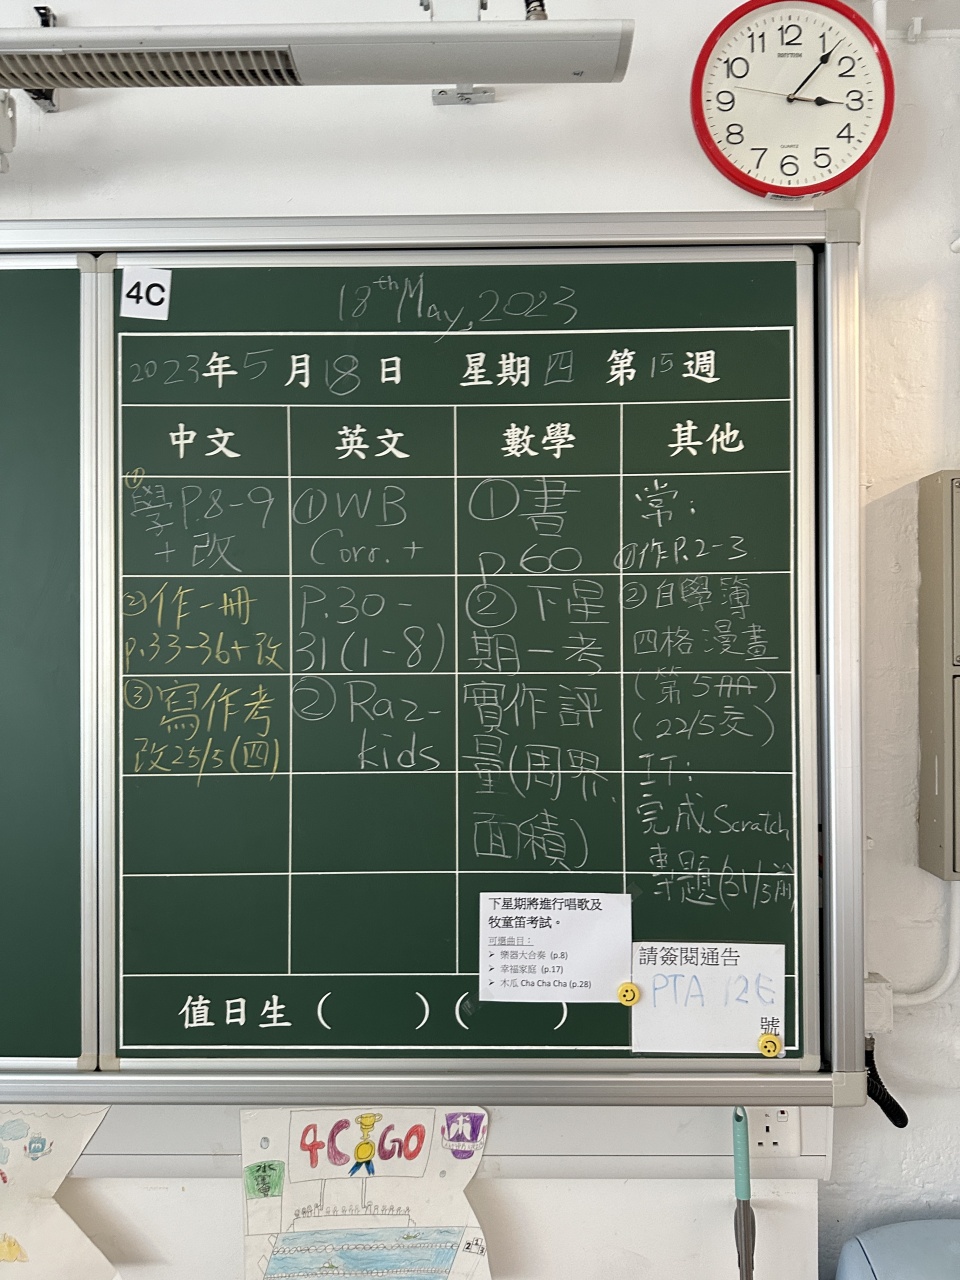 RHYTHM
12
1
2
3
4
5
6
7
8
9
10
11
QUARTZ
4C
18th May, 2023
2023年5月18日 星期四 第15週
中文 英文 數學 其他
①
學P.8-9
+改
②作一冊
p.33-36+改
③寫作考
改25/5(四)
①WB
Corr. +
P.30-
31(1-8)
②Raz-
kids
①書
p.60
②下星
期一考
實作評
量(周界、
面積)
常:
①作P.2-3
②自學簿
四格漫畫
(第5冊)
(22/5交)
IT:
完成Scratch
專題(31/5前)
下星期將進行唱歌及
牧童笛考試。
可選曲目:
➢ 樂器大合奏 (p.8)
➢ 幸福家庭 (p.17)
➢ 木瓜 Cha Cha Cha (p.28)
請簽閱通告
PTA 12E
號
值日生( )( )
4C GO
水運會
2 1 3